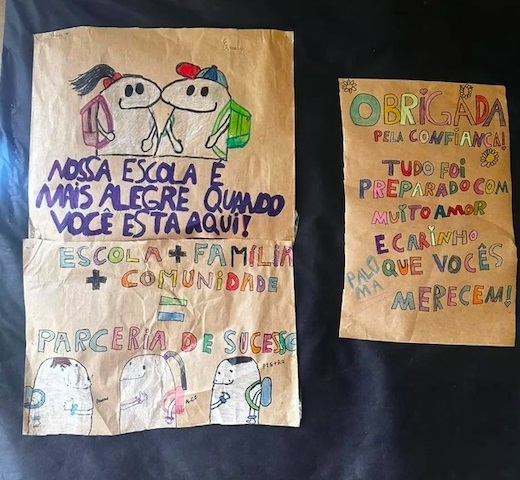 NOSSA ESCOLA É
MAIS ALEGRE QUANDO
VOCÊ ESTA AQUI!
ESCOLA + FAMÍLIA
+ COMUNIDADE
=
PARCERIA DE SUCESSO
OBRIGADA
PELA CONFIANÇA!
TUDO FOI
PREPARADO COM
MUITO AMOR
E CARINHO
QUE VOCÊS
MERECEM!
PALO
MA